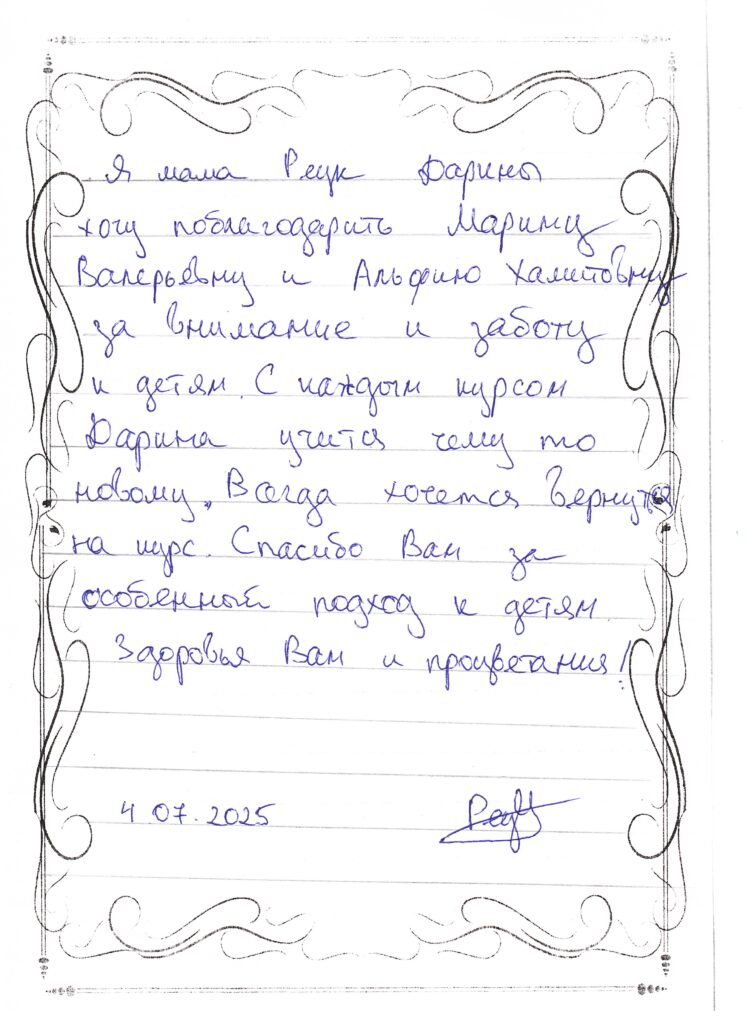 Я мама Рецк Дарины
хочу поблагодарить Марину
Валерьевну и Альфию Халитовну
за внимание и заботу
к детям. С каждым курсом
Дарина учится чему то
новому. Всегда хочется вернутся
на курс. Спасибо Вам за
особенный подход к детям.
Здоровья Вам и процветания!
4 07. 2025